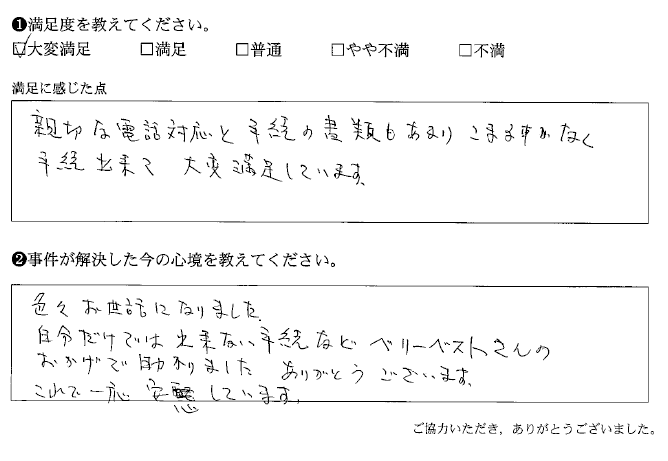 ❶満足度を教えてください。
☑大変満足 □満足 □普通 □やや不満 □不満
満足に感じた点
親切な電話対応と手続の書類もあまりこまますがなく
手続出来て 大変満足しています。
❷事件が解決した今の心境を教えてください。
色々お世話になりました。
自分だけでは出来ない手続など ベリーベストさんの
おかげで助かりました ありがとうございます。
これで一応安しています。
ご協力いただき,ありがとうございました。